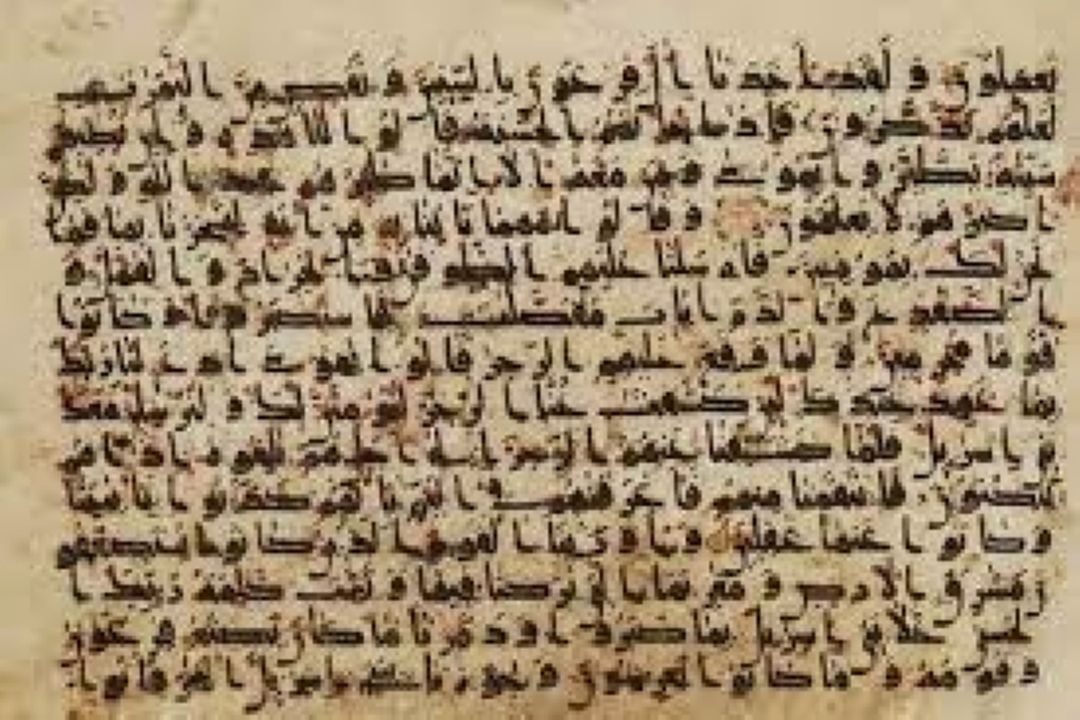 تعملون ولقد اخذنا ال فرعون بالسنين ونقص من الثمرت
لعلهم يذكرون فاذا جاتهم الحسنة قالوا لنا هذه وان تصبهم
سيئة يطيروا بموسى ومن معه الا انما طئرهم عند الله ولكن
اكثرهم لا يعلمون وقالوا مهما تاتنا به من اية لتسحرنا بها فما
نحن لك بمومنين فارسلنا عليهم الطوفن والجراد والقمل و
الضفدع والدم ايات مفصلت فاستكبروا وكانوا
قوما مجرمين ولما وقع عليهم الرجز قالوا يموسى ادع لنا ربك
بما عهد عندك لئن كشفت عنا الرجز لنومنن لك ولنرسلن معك
بني اسريل فلما كشفنا عنهم الرجز الى اجل هم بلغوه اذا هم
ينكثون فانتقمنا منهم فاغرقنهم في اليم بانهم كذبوا بايتنا
وكانوا عنها غفلين واورثنا القوم الذين كانوا يستضعفو
ن مشرق الارض ومغربها التي بركنا فيها وتمت كلمت ربك ا
لحسنى على بني اسريل بما صبروا ودمرنا ما كان يصنع فرعون
وقومه وما كانوا يعرشون وجوزنا ببني اسريل البحر فاتوا